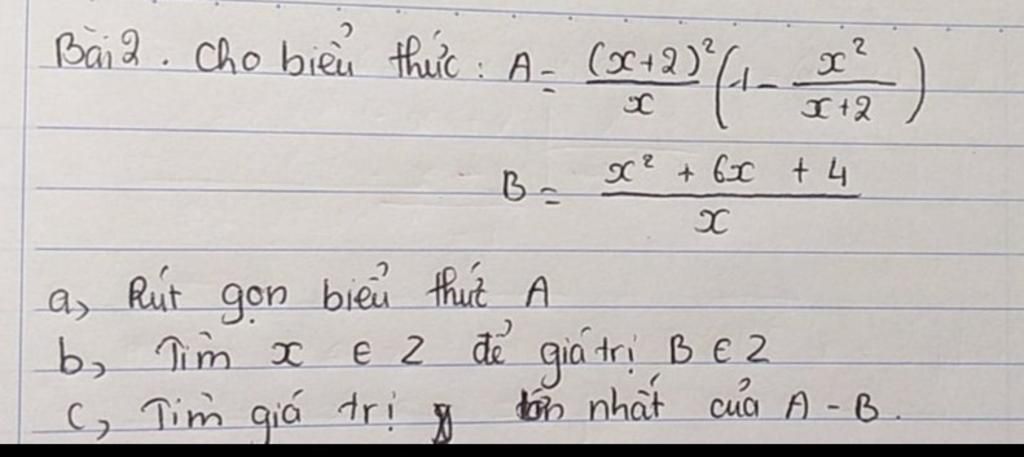 Bài 2. Cho biểu thức: A = (x+2)²/x (1 - x²/(x+2))
B = (x² + 6x + 4)/x
a, Rút gọn biểu thức A
b, Tìm x ∈ Z để giá trị B ∈ Z
c, Tìm giá trị lớn nhất của A - B.